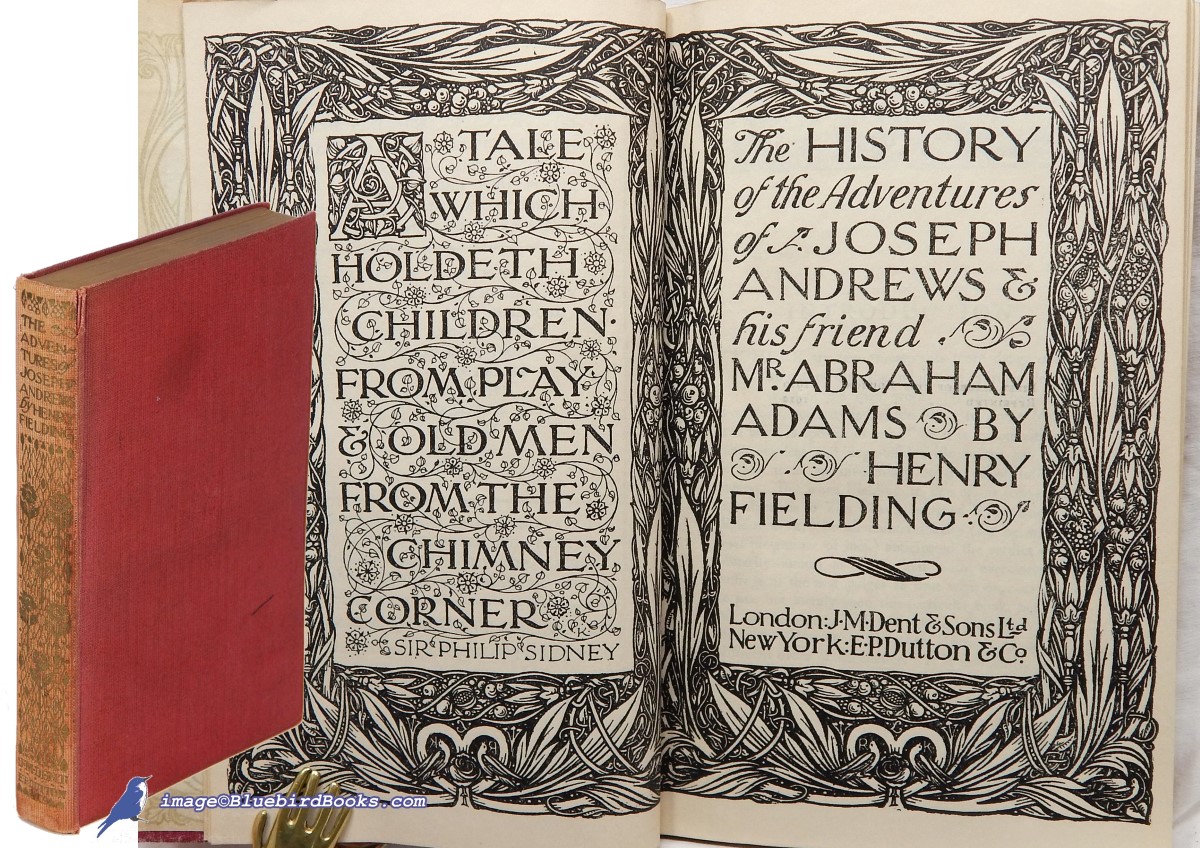 THE
ADVEN
TURES OF
JOSEPH
ANDREWS
BY HENRY
FIELDING
A TALE
WHICH
HOLDETH
CHILDREN
FROM PLAY
& OLD MEN
FROM THE
CHIMNEY
CORNER
SIR PHILIP SIDNEY
The HISTORY
of the Adventures
of JOSEPH
ANDREWS &
his friend
MR. ABRAHAM
ADAMS BY
HENRY
FIELDING
London: J.M. Dent & Sons Ltd
New York: E.P. Dutton & Co
image©BluebirdBooks.com